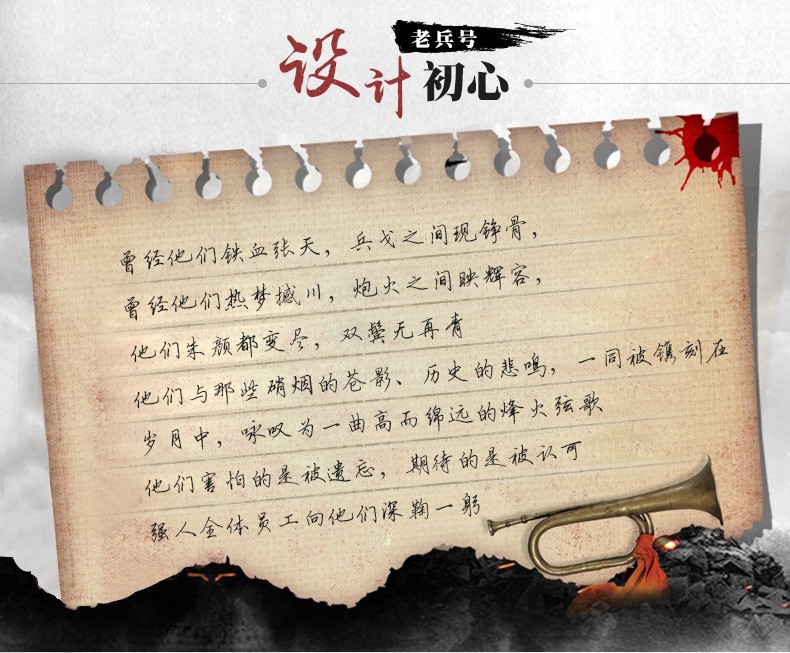 老兵号
设计初心
曾经他们铁血张天，兵戈之间现铮骨，
曾经他们热梦撼川，炮火之间映辉容，
他们朱颜都变尽，双鬓无再青
他们与那些硝烟的苍影、历史的悲鸣，一同被镌刻在
岁月中，咏叹为一曲高而绵远的烽火弦歌
他们害怕的是被遗忘，期待的是被认可
强人全体员工向他们深鞠一躬